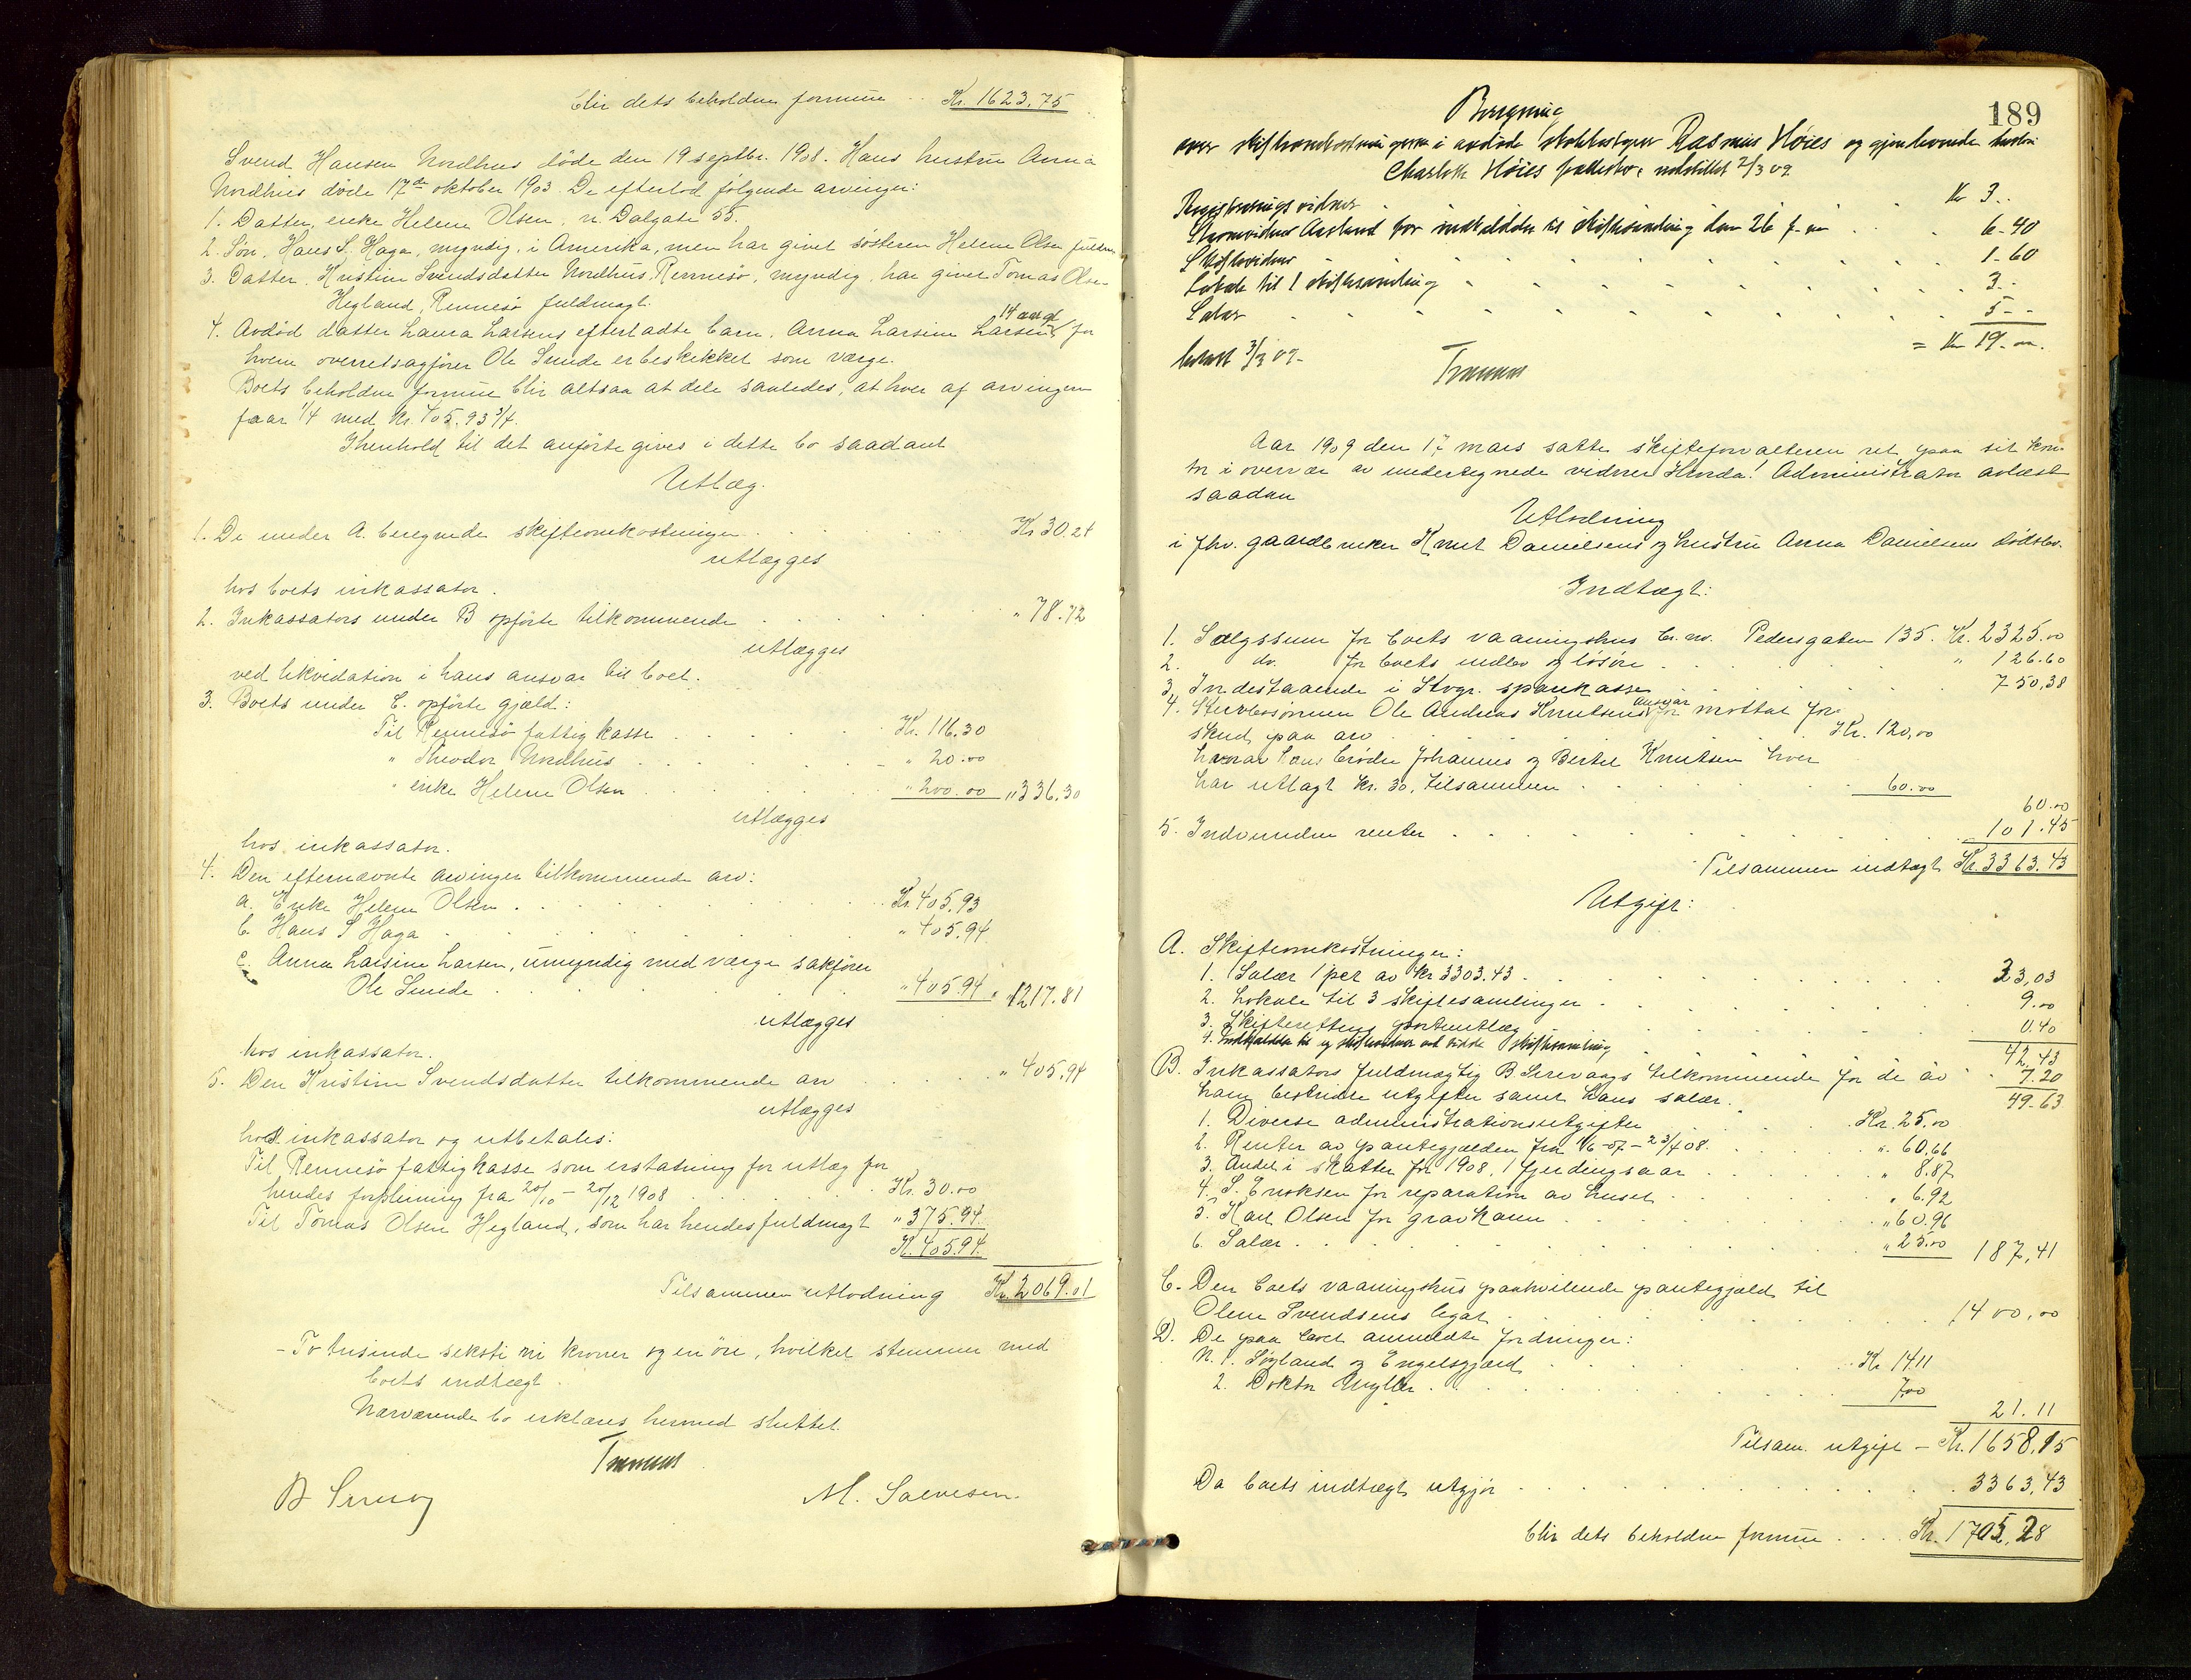 blir dets beholdne formue . . Kr. 1623.75
Svend Hansen Nordhus döde den 19 septbr. 1908. Hans hustru Anna
Nordhus döde 17de oktober 1903. De efterlod følgende arvinger:
1. Datter, enke Helene Olsen, n. Dalgate 55.
2. Sön, Hans S. Haga, myndig, i Amerika, men har givet søsteren Helene Olsen fuldm.
3. Datter, Kristine Svendsdatter Nordhus, Rennesö, myndig, har givet Tomas Olsen
Hegland, Rennesö fuldmagt.
14 aar gl
4. Avdöd datter Laura Larsens efterladte barn, Anna Larsine Larsen, for
hvem overretssagförer Ole Sunde er beskikket som værge.
Boets beholdne formue blir altsaa at dele saaledes, at hver af arvingerne
faar 1/4 med kr. 405.93 3/4.
I henhold til det anförte gives i dette bo saadant
Utlæg.
1. De under A. beregnede skifteomkostninger . . . Kr 30.24
utlægges
hos boets inkassator.
2. Inkassators under B opförte tilkommende . . . " 78.72
utlægges
ved likvidation i hans ansvar til boet.
3. Boets under C. opförte gjæld:
Til Rennesö fattigkasse . . . Kr. 116.30
" Theodor Nordhus . . . " 20.00
" enke Helene Olsen . . . " 200.00 " 336.30
utlægges
hos inkassator.
4. Den efternævnte arvinger tilkommende arv:
a. Enke Helene Olsen . . . Kr. 405.93
b. Hans S Haga . . . " 405.94
c. Anna Larsine Larsen, umyndig med værge sakförer
Ole Sunde . . . " 405.94 " 1217.81
utlægges
hos inkassator.
5. Den Kristine Svendsdatter tilkommende arv . . . " 405.94
utlægges
hos inkassator og utbetales:
Til Rennesö fattigkasse som erstatning for utlæg for
hendes forpleining fra 20/10 - 20/12 1908 . . . Kr. 30.00
Til Tomas Olsen Hegland, som har hendes fuldmagt " 375.94
Kr. 405.94
Tilsammen utlodning Kr. 2069.01
- To tusinde seksti ni kroner og en öre, hvilket stemmer med
boets indtægt.
Nærværende bo erklæres hermed sluttet.
M. Salvesen.
189
Beregning
over skifteomkostningerne i avdøde Rasmus Høies og gjenlevende hustru
Charlotte Høies fællesbo, 2/3 09
Registreringsvidner . . . Kr 3..
Stevnevidner Aarsland for indkaldelse til skiftesamling den 26 f. m . . 6-40
Skiftevidner . . . 1-60
Lokale til 1 skiftesamling . . . 3..
Salær . . . 5--
= Kr 19.00.
3/3 09.
Aar 1909 den 17 mars satte skifteforvalteren ret paa sit kon-
tor i overvær av undertegnede vidner. Hvorda! Administrator avlæst
saadan
Utlodning
i fhv. gaardbruker Knut Danielsens og hustru Anna Danielsens dödsbo.
Indtægt:
1. Salgssum for boets vaaningshus b. nr. Pedersgaten 135. Kr. 2325.00
2. do. for boets indbo og lösöre . . . " 126.60
3. Indestaaende i Stvgr. sparekasse . . . 750,38
ansvar
4. Stervbosönnen Ole Andreas Knutsens for mottat for-
skud paa arv . . . Kr. 120,00
hvorav hans brödre Johannes og Bertel Knutsen hver
har utlagt kr. 30, tilsammen . . . 60.00
60.00
5. Indvundne renter . . . 101.45
Tilsammen indtægt Kr. 3363.43
Utgift:
A. Skifteomkostninger:
1. Salær 1 pct av kr 3303.43 . . . 33,03
2. Lokale til 3 skiftesamlinger . . . 9.00
3. Skifterettens portoutlæg . . . 0.40
42,43
4. Indkaldelse til og skiftevidner ved sidste skiftesamling . . . 7.20
49-63
B. Inkassators fuldmægtig B. Serevaags tilkommende for de av
ham bestridte utgifter samt hans salær.
1. Diverse administrationsutgifter . . . Kr. 25.00
2. Renter av pantegjælden fra 1/6-07 - 23/4 08 . . . " 60,66
3. Andel i skatter for 1908, 1 fjerdingsaar . . . " 8.87
4. S. Eriksen for reparation av huset . . . " 6.92
5. Karl Olsen for gravkann . . . " 60.96
6. Salær . . . " 25.00 187,41
C. Den boets vaaningshus paahvilende pantegjæld til
Olene Svendsens legat . . . 1400,00
D. De paa boet anmeldte fordringer:
N. 1. Sögland og Engelsgjærd . . . Kr 14.11
2. Doktor . . . 7.00
21.11
Tilsam. utgift - Kr. 1658,15
Da boets indtægt utgjör . . . 3363,43
blir dets beholdne formue . . . Kr. 1705,28